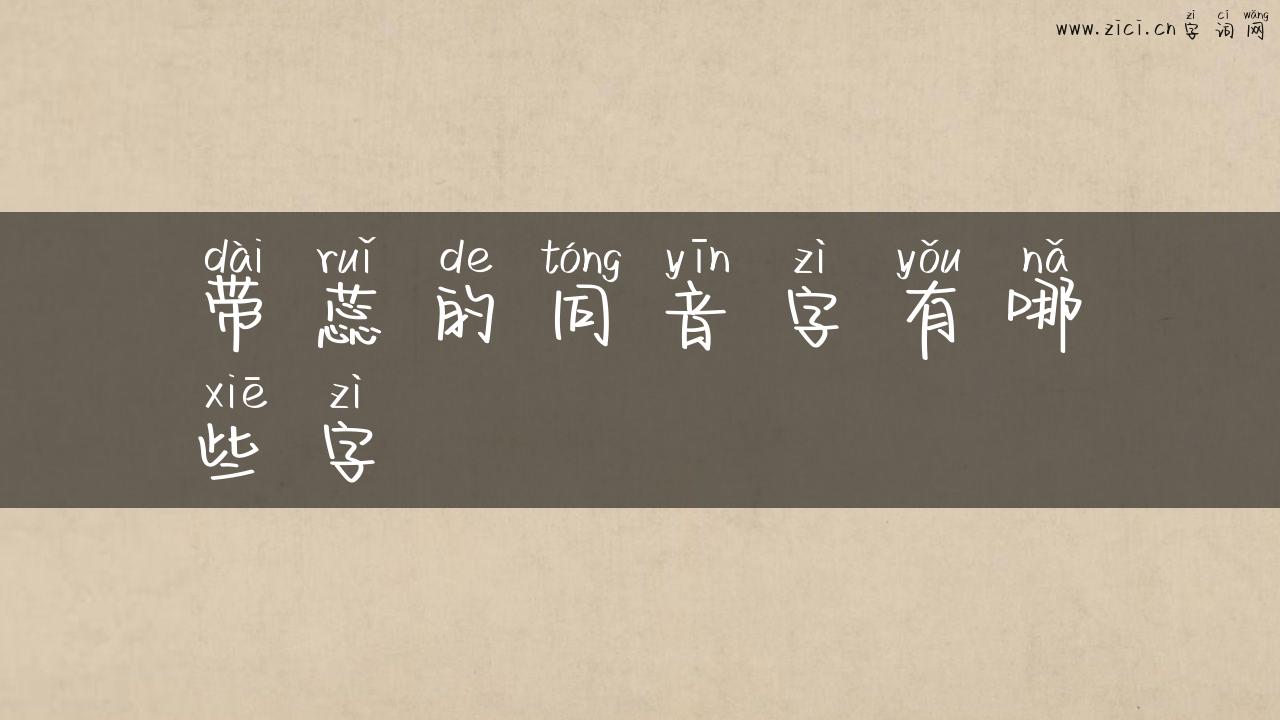 zì cí wǎng
www.zici.cn 字 词 网
dài ruǐ de tóng yīn zì yǒu nǎ
带 蕊 的 同 音 字 有 哪
xiē zì
些 字